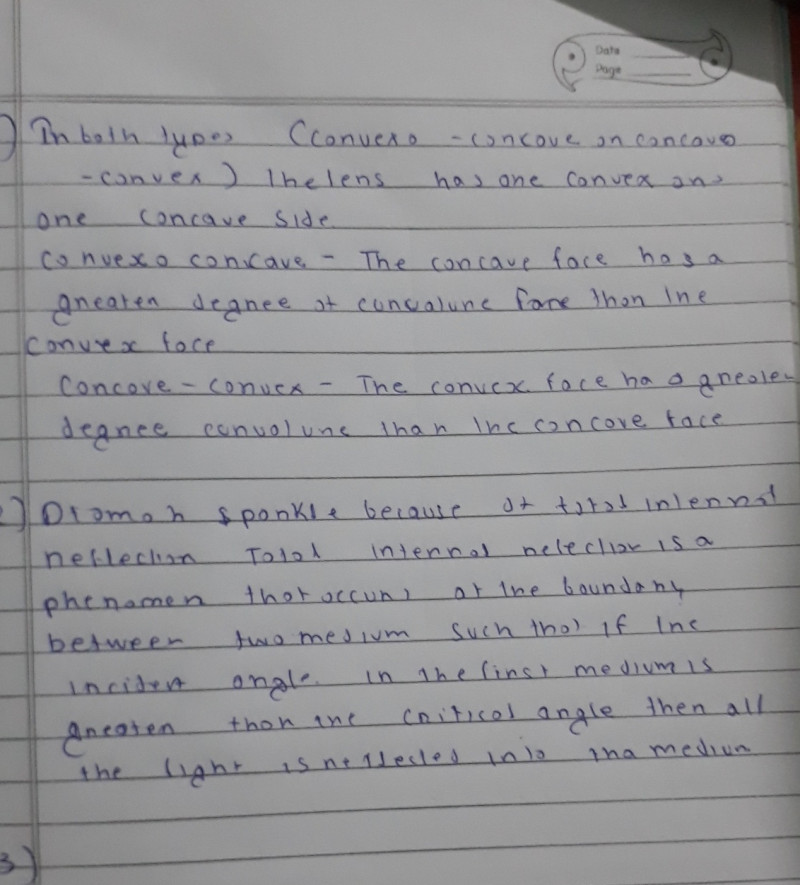 Date
Page
) In both types (convexo - concave on concavo
-convex) The lens has one convex and
one concave side.
convexo concave - The concave face has a
greater degree of curvature than the
convex face
Concave - convex - The convex face has greater
degree than the concave face
) sparkle because of total internal
reflection Total internal is a
phenomen that occurs at the boundary
between two medium such that if the
incident angle. in the first medium is
greater than the critical angle then all
the light is reflected into tha medium
3)